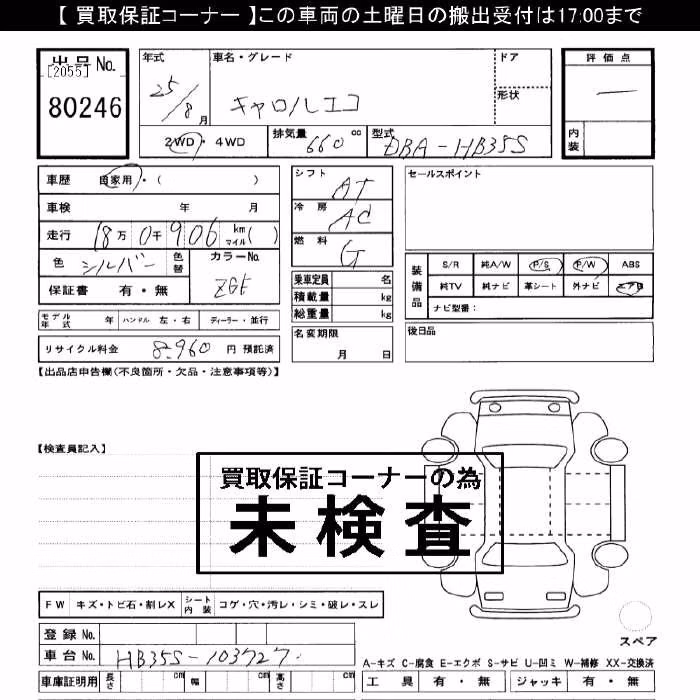 【 買取保証コーナー 】この車両の土曜日の搬出受付は17:00まで
出品 No.
[2055]
80246
年式
25/8 月
車名・グレード
キャロルエコ
ドア
形状
2WD ・ 4WD
排気量
660 cc
型式
DBA-HB35S
評価点
―
内装
車歴 自家用・( )
車検 年 月
走行 18万 0千 906 km マイル( )
色 シルバー 色替
カラーNo.
ZGE
保証書 有・無
モデル年式 年 ハンドル 左・右 ディーラー・並行
リサイクル料金 8,960 円 預託済
シフト AT
冷房 AC
燃料 G
乗車定員 名
積載量 kg
総重量 kg
名変期限
月 日
セールスポイント
装備品
S/R 純A/W P/S P/W ABS
純TV 純ナビ 革シート 外ナビ エアB
ナビ型番:
後日品
【出品店申告欄(不良箇所・欠品・注意事項等)】
【検査員記入】
買取保証コーナーの為
未検査
FW キズ・トビ石・割レX シート内装 コゲ・穴・汚レ・シミ・破レ・スレ
登録 No.
車台 No. HB35S-103727
車庫証明用 長さ cm 幅 cm 高さ cm
スペア
A-キズ C-腐食 E-エクボ S-サビ U-凹ミ W-補修 XX-交換済
工具 有・無 ジャッキ 有・無